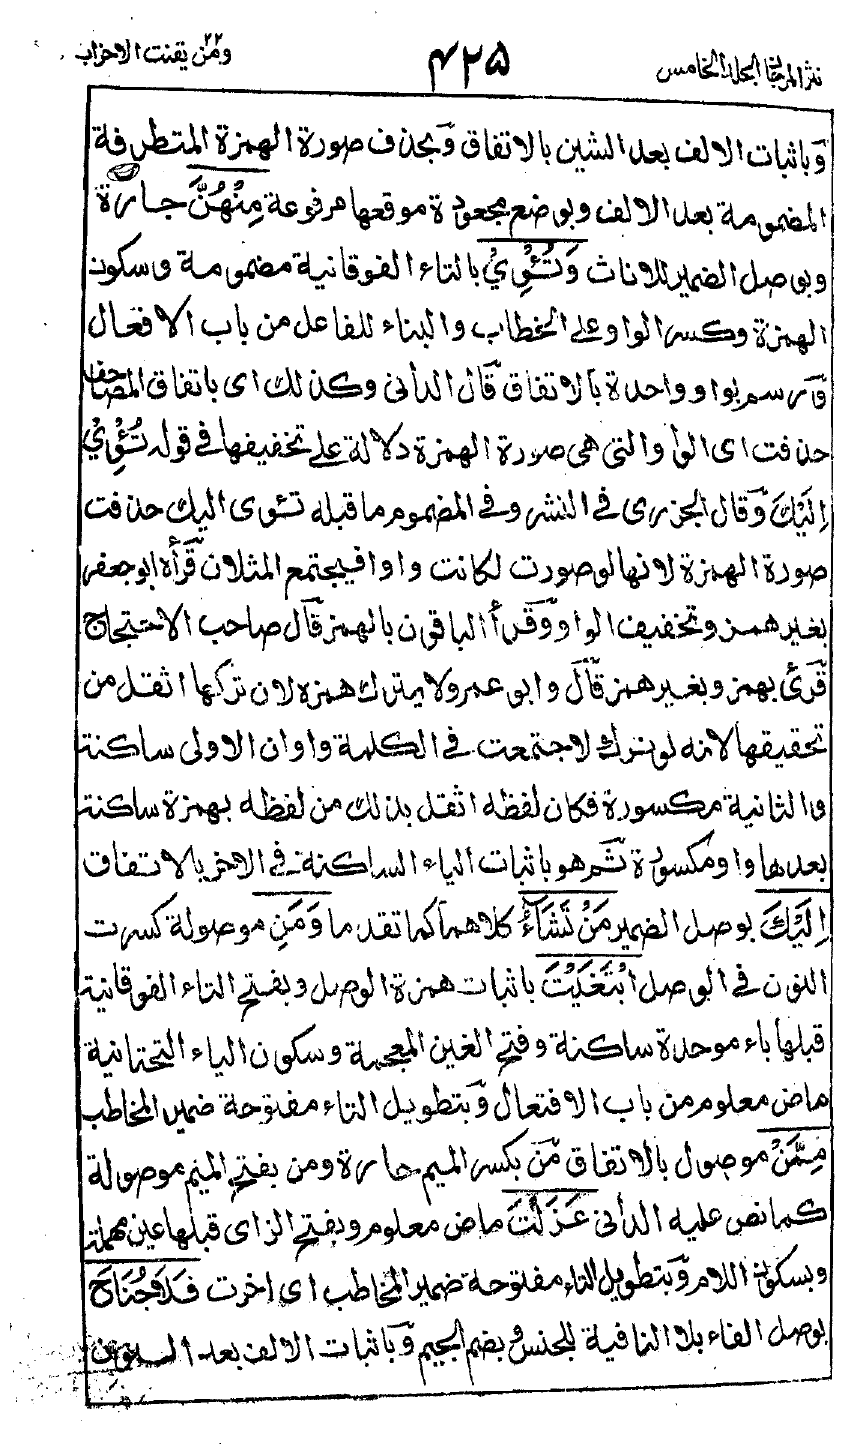 نثر المرجان المجلد الخامس ٤٢٥ ومن يقنت ٢٢ الاحزاب
وباثبات الالف بعد الشين بالاتفاق وبحذف صورة الهمزة المتطرفة
المضمومة بعد الالف وبوضع مجعودة موقعها مرفوعة مِنْهُنَّ جارة
وبوصل الضمير للاناث وَتُـْٔوِيْ بالتاء الفوقانية مضمومة وسكون
الهمزة وكسر الواو على الخطاب والبناء للفاعل من باب الافعال
ورسم بواو واحدة بالاتفاق قال الدانى وكذلك اى باتفاق المصاحف
حذفت اى الواو التى هى صورة الهمزة دلالة على تخفيفها فى قوله تُـْٔوِيْ
اِلَيْكَ وقال الجزرى فى النشر وفى المضموم ما قبله تـٔوى اليك حذفت
صورة الهمزة لانها لو صورت لكانت واوا فيجتمع المثلان قرأه ابو جعفر
بغير همز وتخفيف الواو وقرأ الباقون بالهمز قال صاحب الاحتجاج
قرئ بهمز وبغير همز قال وابو عمرو لا يترك همزه لان تركها اثقل من
تحقيقها لانه لو ترك لاجتمعت فى الكلمة واوان الاولى ساكنة
والثانية مكسورة فكان لفظه اثقل بذلك من لفظه بهمزة ساكنة
بعدها واو مكسورة ثم هو باثبات الياء الساكنة فى الاخر بالاتفاق
اِلَيْكَ بوصل الضمير مَنْ تَشَآءُ كلاهما كما تقدما وَمَنِ موصولة كسرت
النون فى الوصل ابْتَغَيْتَ باثبات همزة الوصل وبفتح التاء الفوقانية
قبلها باء موحدة ساكنة وفتح الغين المعجمة وسكون الياء التحتانية
ماض معلوم من باب الافتعال وبتطويل التاء مفتوحة ضمير المخاطب
مِمَّنْ موصول بالاتفاق مّن بكسر الميم جارة ومن بفتح الميم موصولة
كما نص عليه الدانى عَزَلْتَ ماض معلوم وبفتح الزاى قبلها عين مهملة
وبسكون اللام وبتطويل التاء مفتوحة ضمير المخاطب اى اخرت فَلَا جُنَاحَ
بوصل الفاء بلا النافية للجنس وبضم الجيم وباثبات الالف بعد النون